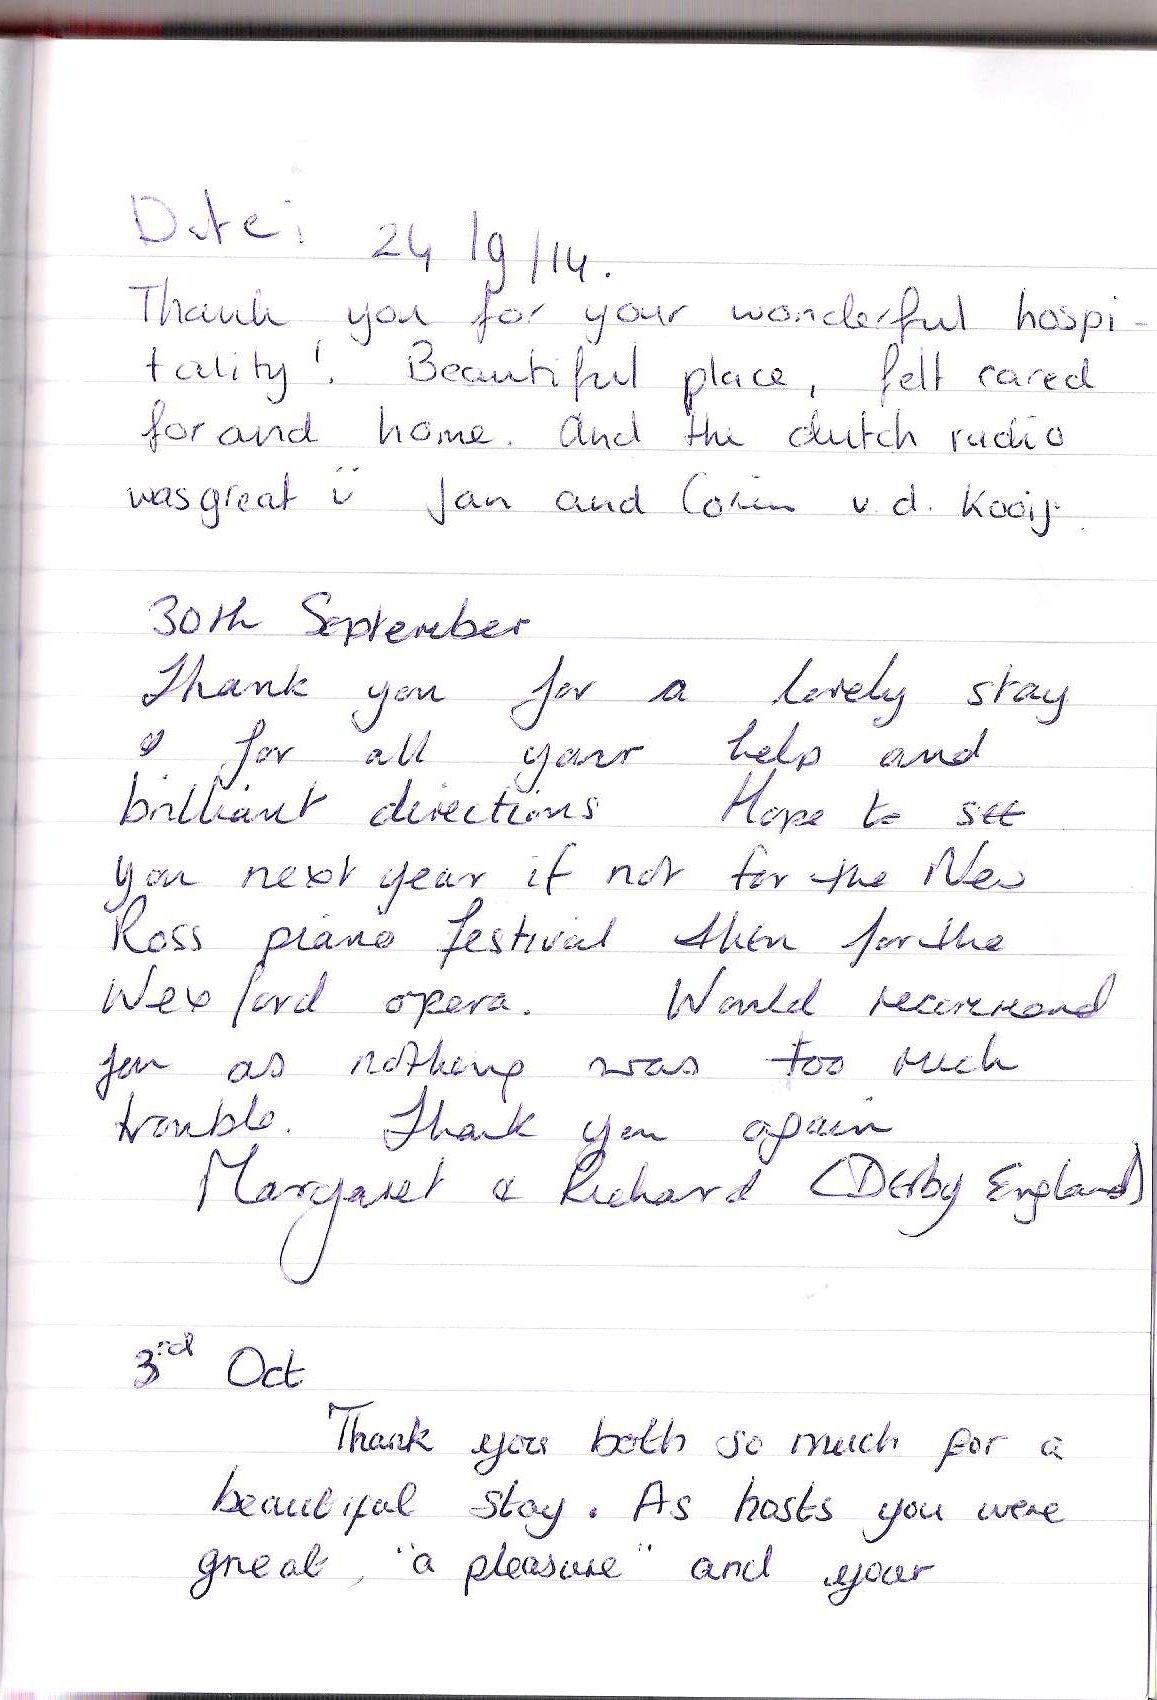 Date: 24/9/14.
Thank you for your wonderful hospi-
tality! Beautiful place, felt cared
for and home. And the dutch radio
was great ü Jan and Corin v.d. Kooij.
30th September
Thank you for a lovely stay
& for all your help and
brilliant directions Hope to see
you next year if not for the New
Ross piano festival then for the
Wexford opera. Would recommend
you as nothing was too much
trouble. Thank you again
Margaret & Richard (Derby England)
3rd Oct
Thank you both so much for a
beautiful stay. As hosts you were
great, "a pleasure" and your